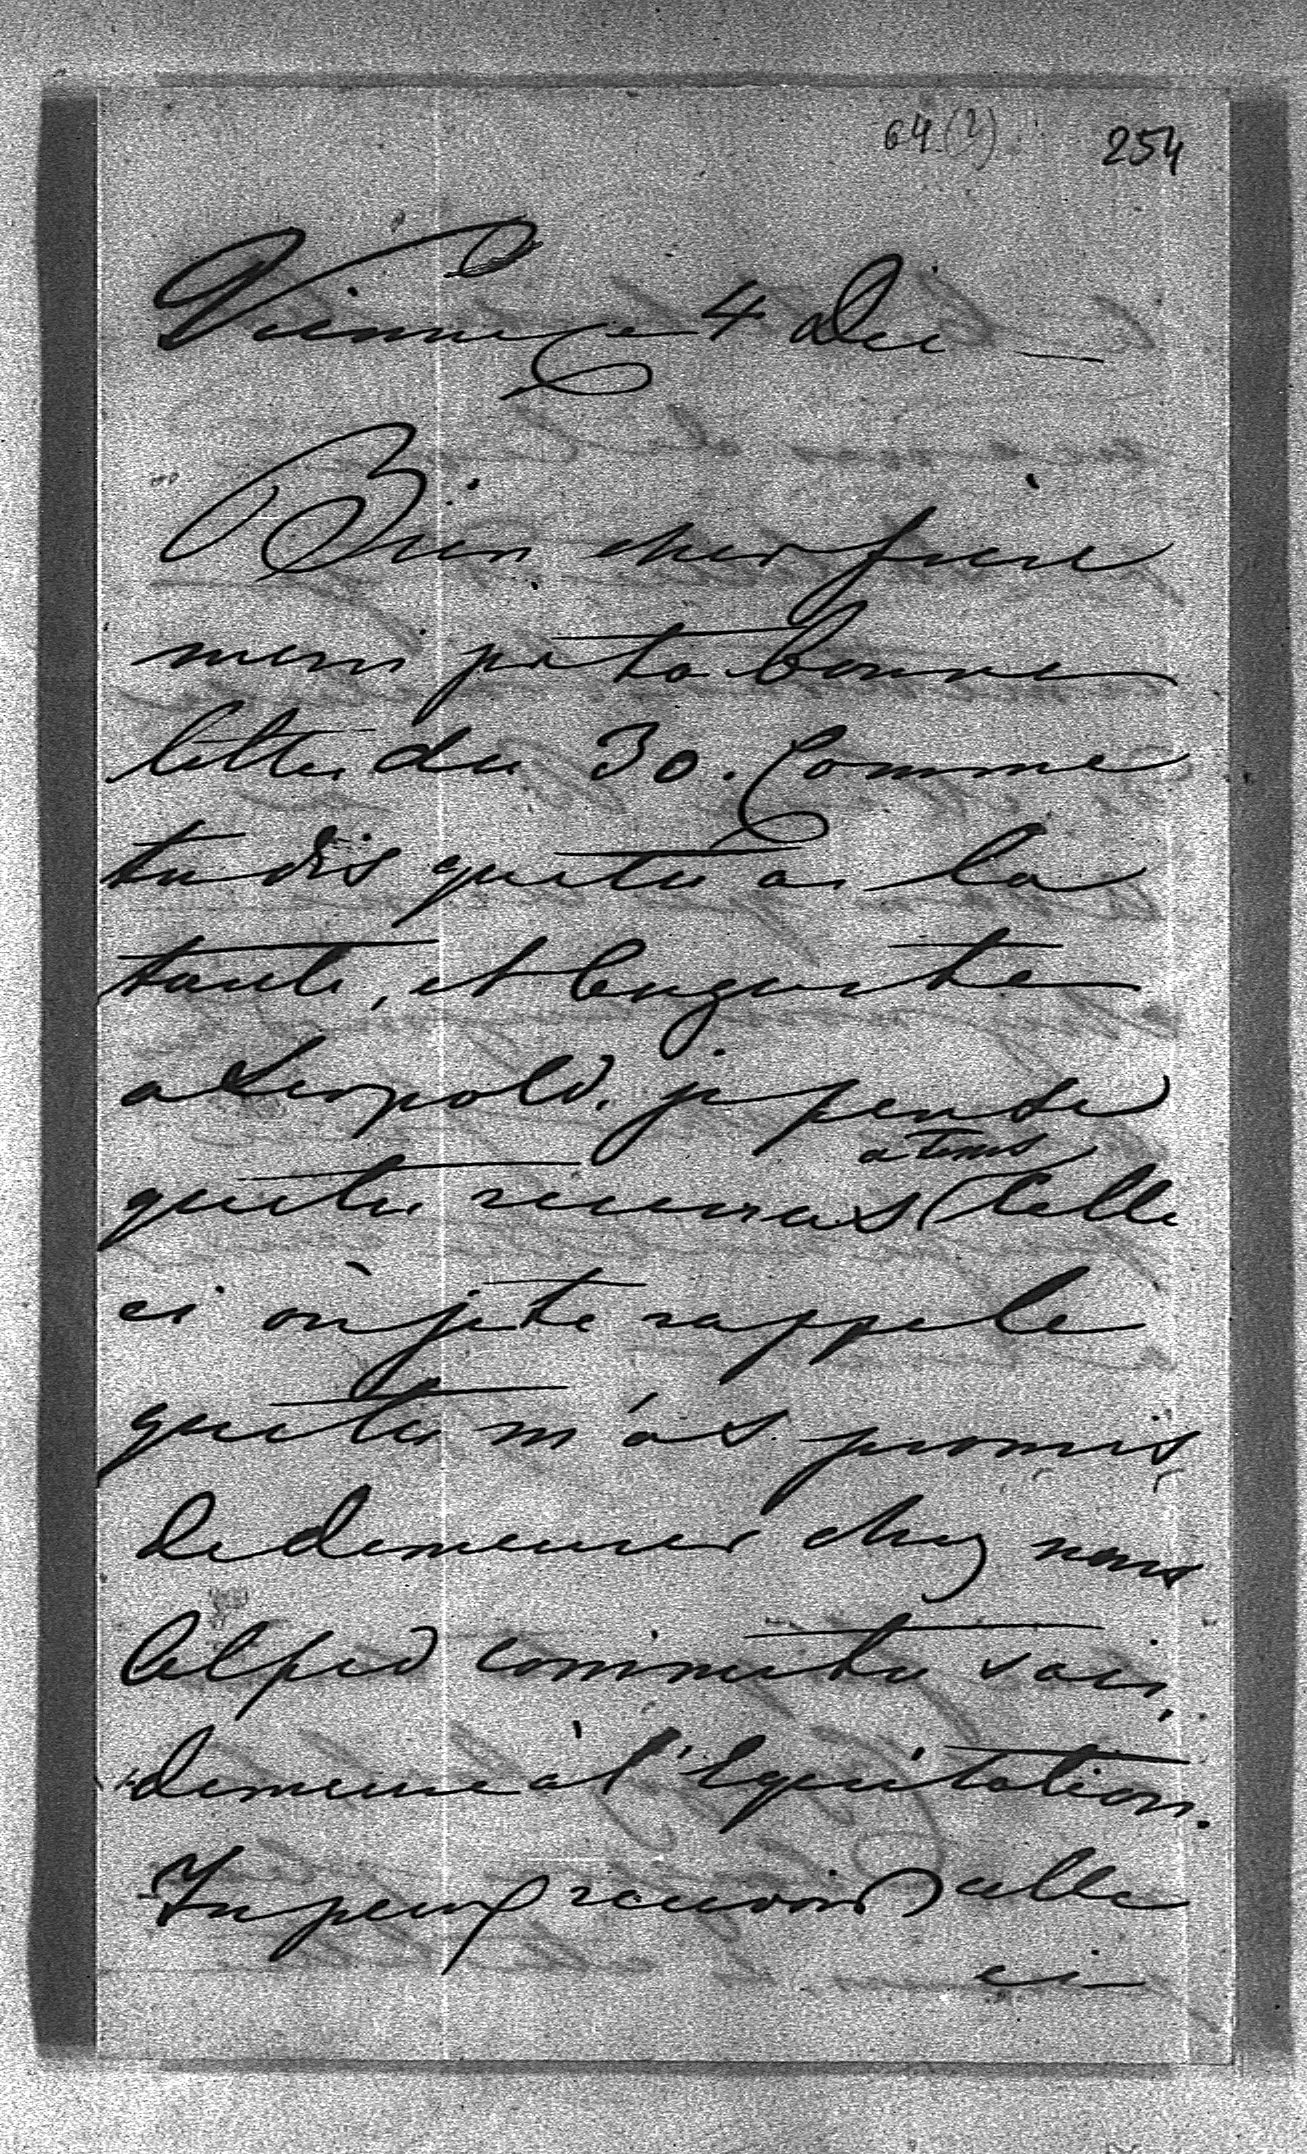 64 (?) 254
Vienne ce 4 Dec
Bien cher frère
merci pr ta bonne
lettre du 30. Comme
tu dis que tu as la
tante, et Auguste
a Leopold, je pense
a tems
que tu recevras Celle
ci où je te rappele
que tu m'as promis
de demeurer chez nous
Alfred comme tu sais,
demeure à l'Equitation.
Tu peux recevoir celle
ci